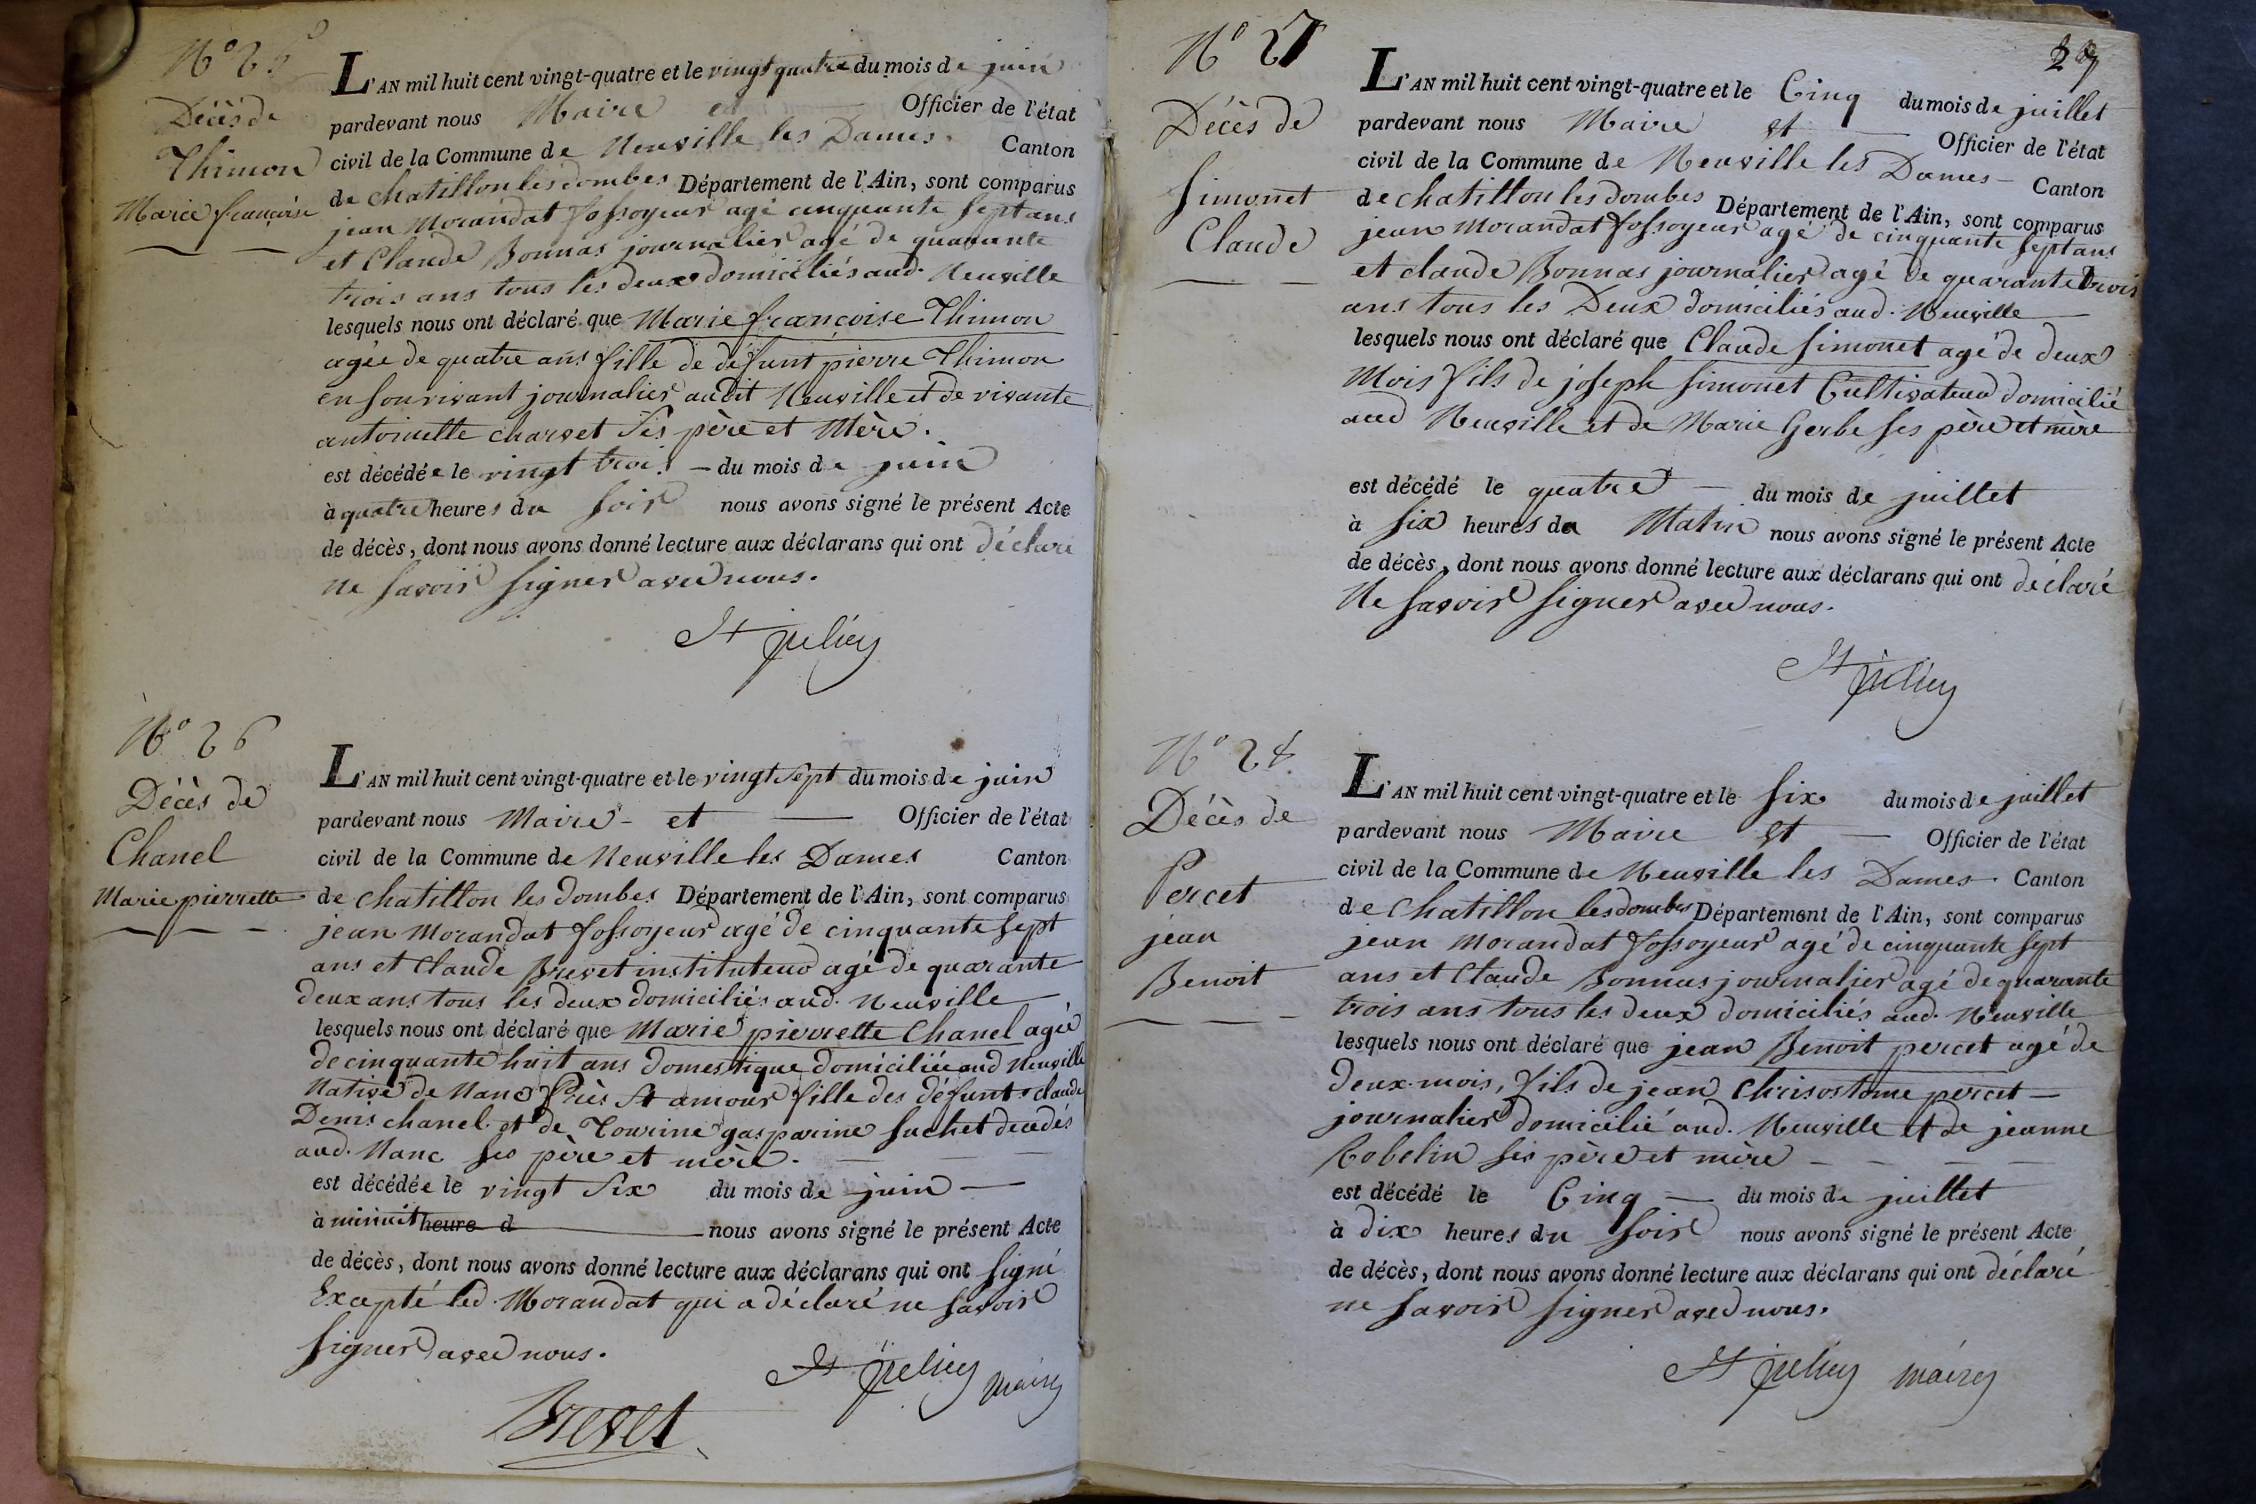 N.o 25
Décès de
Thimon
Marie françoise
L'AN mil huit cent vingt-quatre et le vingt quatre du mois de juin
pardevant nous Maire et Officier de l'état
civil de la Commune de Neuville les Dames. Canton
de chatillon les dombes Département de l'Ain, sont comparus
jean Morandat fossoyeur agé cinquante sept ans
et Claude Bonnas journalier agé de quarante
trois ans tous les deux domiciliés aud. Neuville
lesquels nous ont déclaré que Marie françoise Thimon
agée de quatre ans fille de défunt pierre Thimon
en son vivant journalier audit Neuville et de vivante
antoinette charvet ses père et Mère.
est décédée le vingt trois - du mois de juin
à quatre heures du soir nous avons signé le présent Acte
de décès, dont nous avons donné lecture aux déclarans qui ont déclaré
ne savoir signer avec nous.
St julien
N.o 26
Décès de
Chanel
Marie pierrette
L'AN mil huit cent vingt-quatre et le vingt sept du mois de juin
pardevant nous Maire - et Officier de l'état
civil de la Commune de Neuville les Dames Canton
de chatillon les dombes Département de l'Ain, sont comparus
jean Morandat fossoyeur agé de cinquante sept
ans et Claude Brevet instituteur agé de quarante
deux ans tous les deux domiciliés aud. Neuville
lesquels nous ont déclaré que Marie pierrette Chanel agée
de cinquante huit ans domestique domiciliée aud Neuville
Native de Nanc Près St amour fille des défunts claude
Denis chanel et de Tourine gasparine suchet decedés
aud. Nanc ses père et mère.
est décédée le vingt six du mois de juin
à minuit heure d nous avons signé le présent Acte
de décès, dont nous avons donné lecture aux déclarans qui ont signé
Excepté led. Morandat qui a déclaré ne savoir
signer avec nous.
St julien maire
Brevet
27
N.o 27
Décès de
Simonet
Claude
L'AN mil huit cent vingt-quatre et le Cinq du mois de juillet
pardevant nous Maire et Officier de l'état
civil de la Commune de Neuville les Dames - Canton
de chatillon les dombes Département de l'Ain, sont comparus
jean Morandat fossoyeur agé de cinquante sept ans
et claude Bonnas journalier agé de quarante trois
ans tous les Deux domiciliés aud. Neuville
lesquels nous ont déclaré que Claude Simonet agé de deux
Mois fils de joseph Simonet Cultivateur domicilié
aud Neuville et de Marie Gerbe ses père et mère
est décédé le quatre du mois de juillet
à six heures du Matin nous avons signé le présent Acte
de décès, dont nous avons donné lecture aux déclarans qui ont déclaré
Ne savoir signer avec nous.
St julien
N.o 28
Décès de
Percet
jean
Benoit
L'AN mil huit cent vingt-quatre et le six du mois de juillet
pardevant nous Maire et Officier de l'état
civil de la Commune de Neuville les Dames Canton
de Chatillon les dombes Département de l'Ain, sont comparus
jean Morandat fossoyeur agé de cinquante sept
ans et Claude Bonnas journalier agé de quarante
trois ans tous les deux domiciliés aud. Neuville
lesquels nous ont déclaré que jean Benoit percet agé de
deux mois, fils de jean Chrisostome percet
journalier domicilié aud. Neuville et de jeanne
Robelin ses père et mère
est décédé le Cinq du mois de juillet
à dix heures du soir nous avons signé le présent Acte
de décès, dont nous avons donné lecture aux déclarans qui ont déclaré
ne savoir signer avec nous.
St julien maire